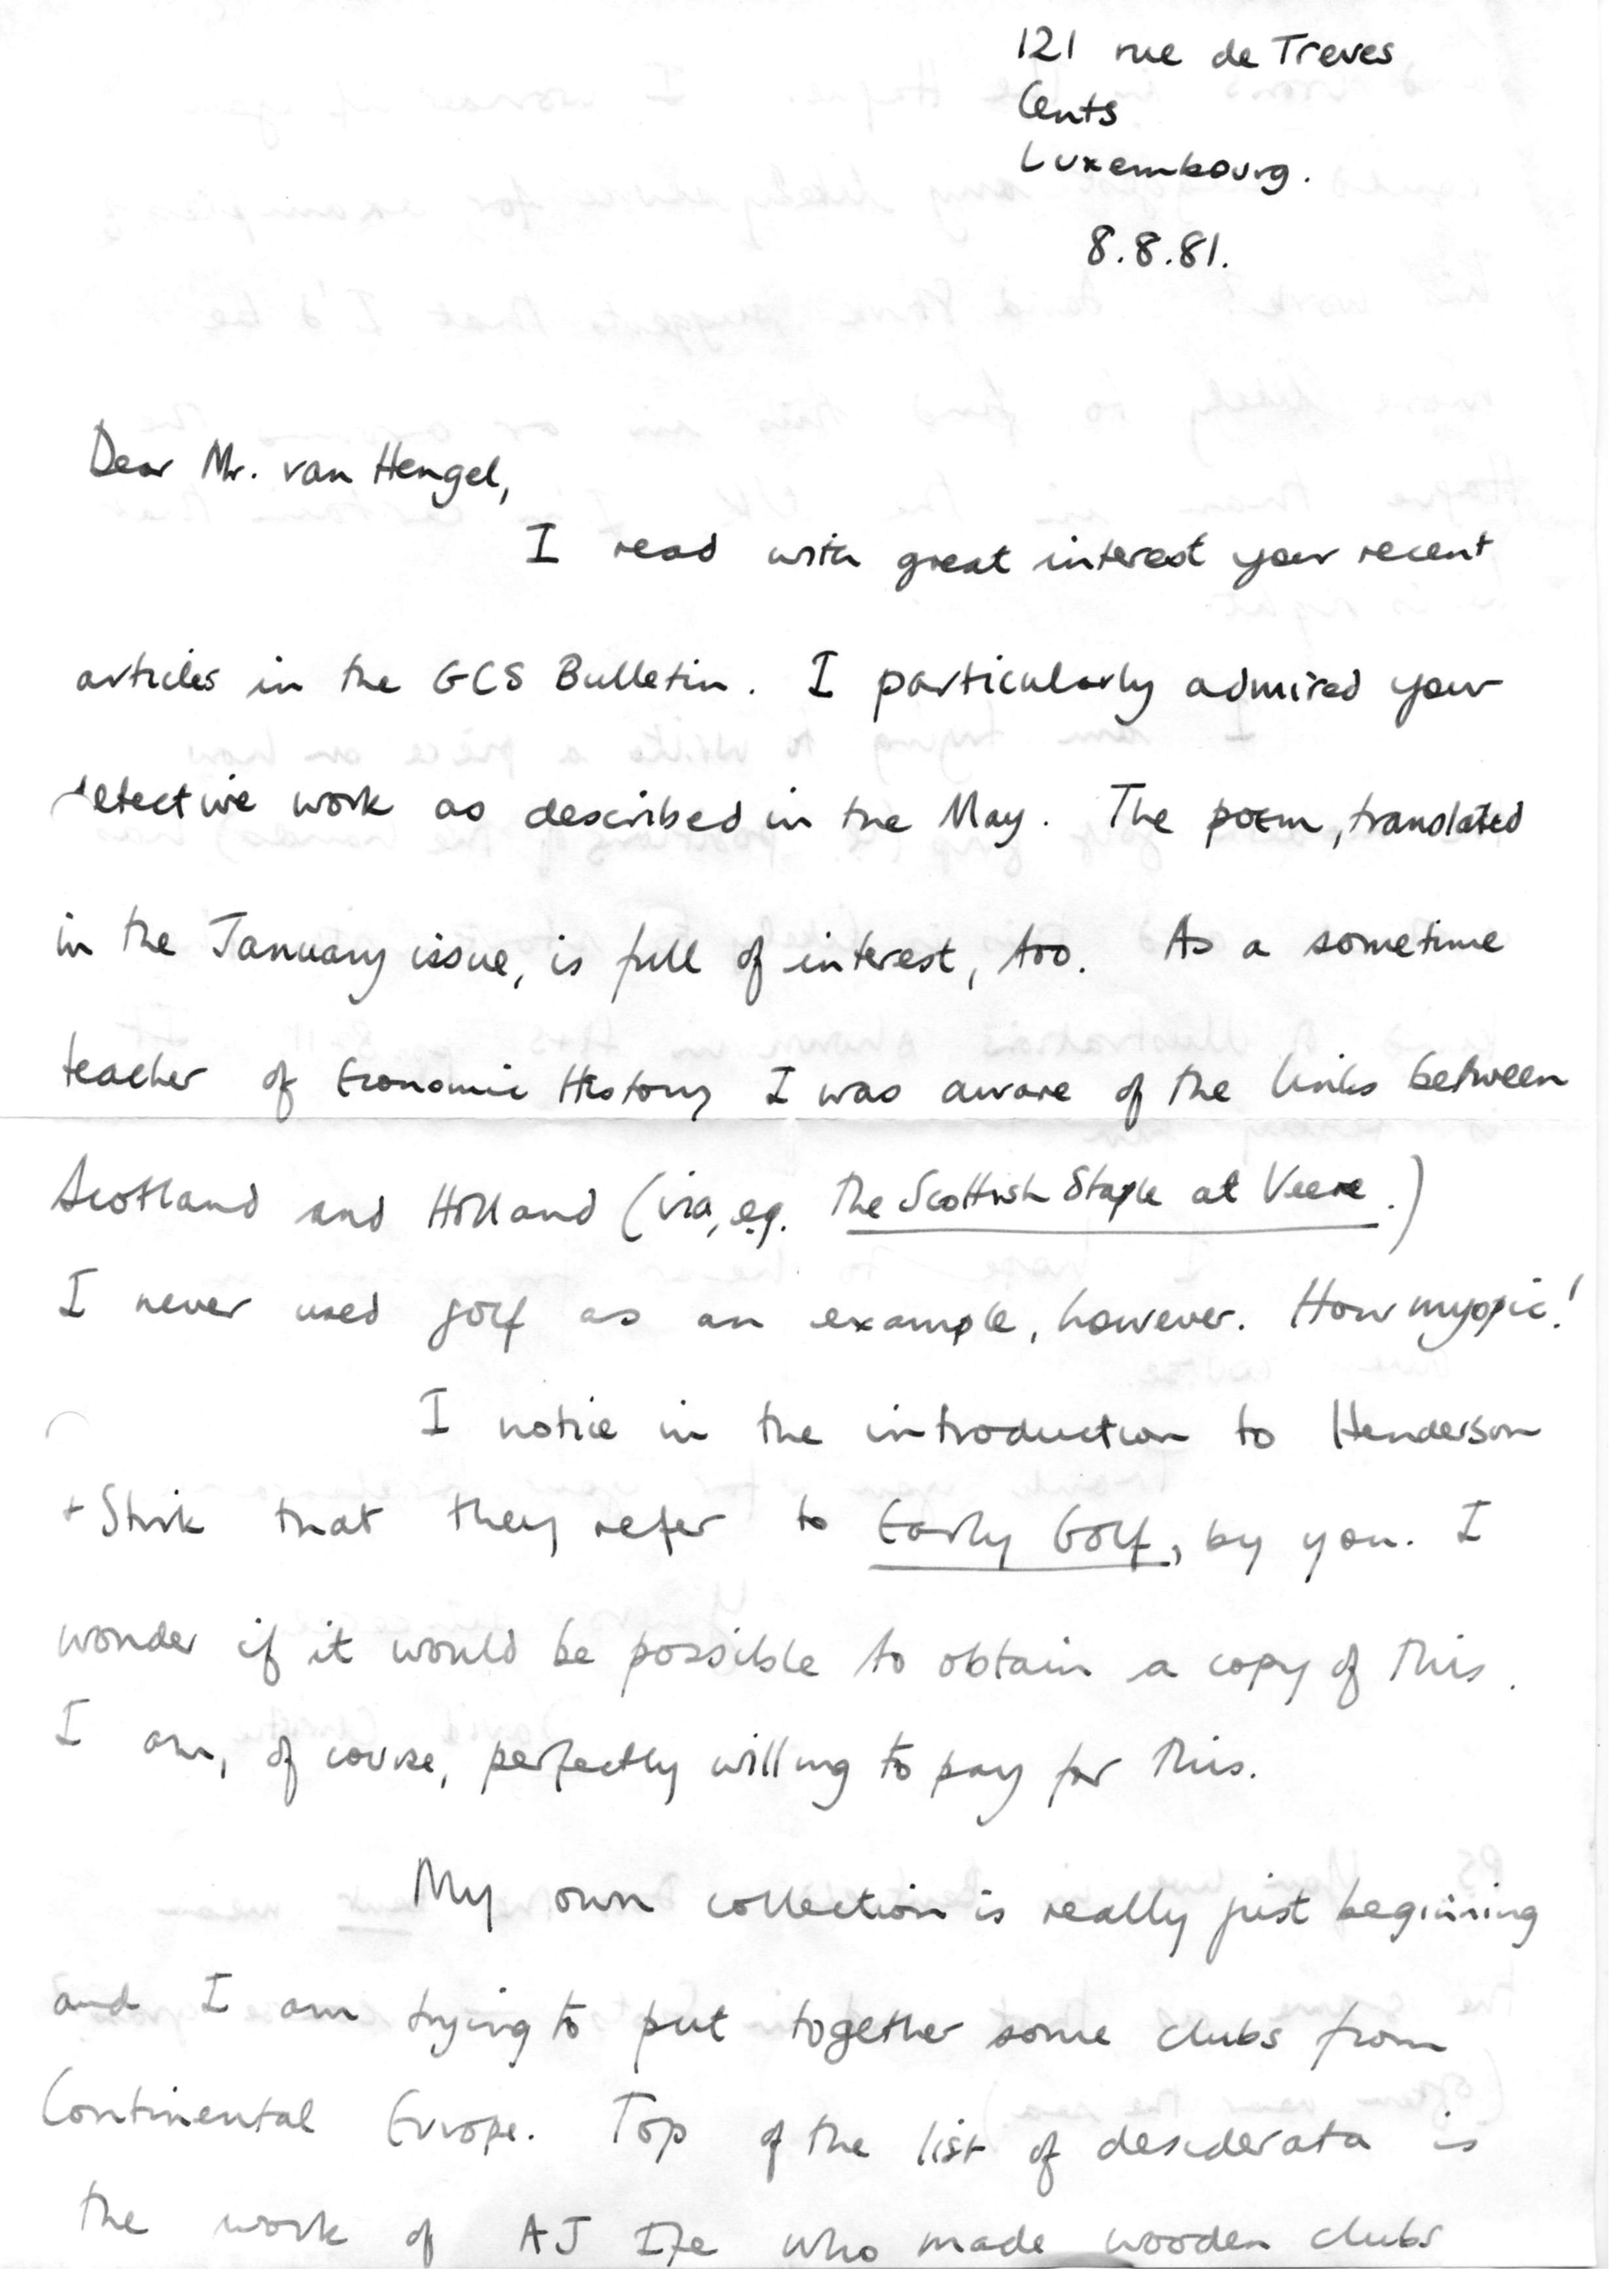 121 rue de Treves
Cents
Luxembourg.
8.8.81.
Dear Mr. van Hengel,
I read with great interest your recent
articles in the GCS Bulletin. I particularly admired your
detective work as described in the May. The poem, translated
in the January issue, is full of interest, too. As a sometime
teacher of Economic History I was aware of the links between
Scotland and Holland (via, e.g. The Scottish Staple at Veere.)
I never used golf as an example, however. How myopic!
I notice in the introduction to Henderson
+ Stirk that they refer to Early Golf, by you. I
wonder if it would be possible to obtain a copy of this.
I am, of course, perfectly willing to pay for this.
My own collection is really just beginning
and I am trying to put together some clubs from
Continental Europe. Top of the list of desiderata is
the work of AJ Ife who made wooden clubs